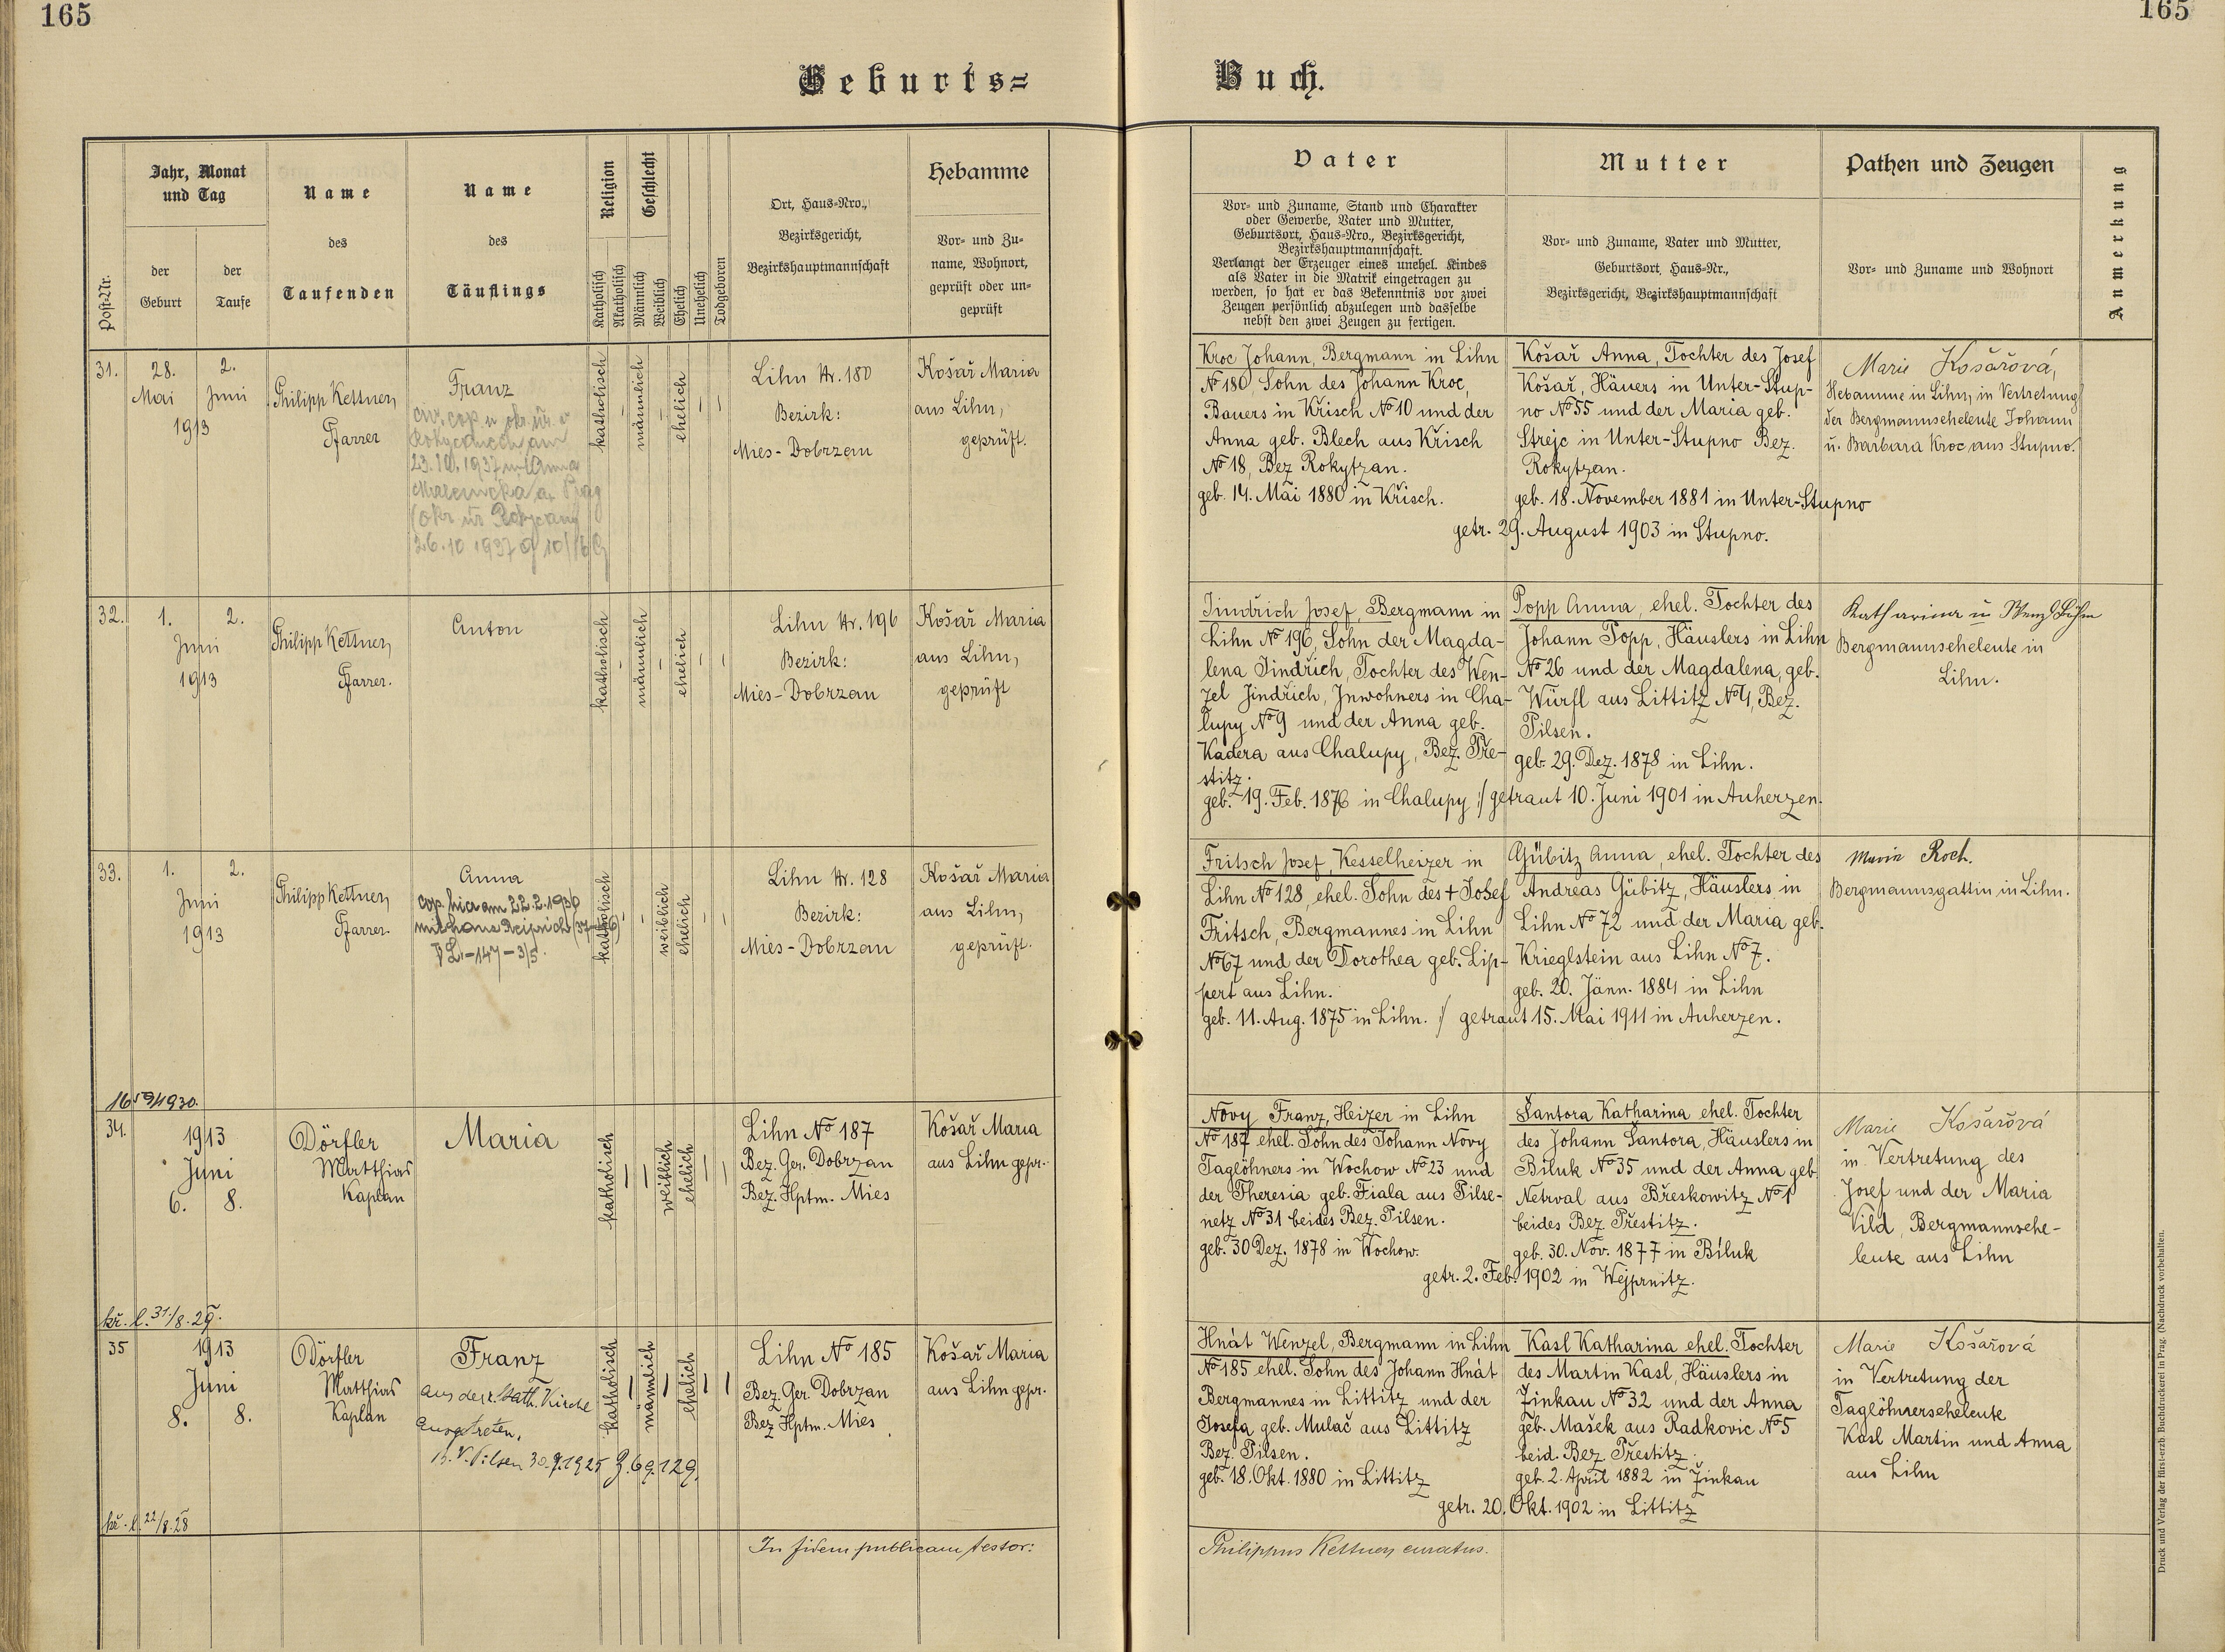 165
165
Geburts=
Buch.
Post-Nr.
Jahr, Monat
und Tag
der
Geburt
der
Taufe
Name
des
Taufenden
Name
des
Täuflings
Religion
Katholisch
Akatholisch
Geschlecht
Männlich
Weiblich
Ehelich
Unehelich
Todgeboren
Ort, Haus-Nro.,
Bezirksgericht,
Bezirkshauptmannschaft
Hebamme
Vor- und Zu-
name, Wohnort,
geprüft oder un-
geprüft
Vater
Vor- und Zuname, Stand und Charakter
oder Gewerbe, Vater und Mutter,
Geburtsort, Haus-Nro., Bezirksgericht,
Bezirkshauptmannschaft.
Verlangt der Erzeuger eines unehel. Kindes
als Vater in die Matrik eingetragen zu
werden, so hat er das Bekenntnis vor zwei
Zeugen persönlich abzulegen und dasselbe
nebst den zwei Zeugen zu fertigen.
Mutter
Vor- und Zuname, Vater und Mutter,
Geburtsort, Haus-Nr.,
Bezirksgericht, Bezirkshauptmannschaft
Pathen und Zeugen
Vor- und Zuname und Wohnort
Anmerkung
31.
28.
2.
Mai
Juni
1913
Philipp Kettner,
Pfarrer
Franz
civ. cop
23.10.1937
26.10 1937
katholisch
männlich
ehelich
Lihn Nr. 180
Bezirk:
Mies-Dobrzan
Košař Maria
aus Lihn,
geprüft.
Kroc Johann, Bergmann in Lihn
No 180, Sohn des Johann Kroc,
Bauers in Křisch No 10 und der
Anna geb. Blech aus Křisch
No 18, Bez Rokytzan.
geb. 14. Mai 1880 in Křisch.
Košař Anna, Tochter des Josef
Košař, Häuers in Unter-Stup-
no No 55 und der Maria geb.
Strejc in Unter-Stupno Bez.
Rokytzan.
geb. 18. November 1881 in Unter-Stupno
getr. 29. August 1903 in Stupno.
Marie Košařová,
Hebamme in Lihn, in Vertretung
der Bergmannseheleute Johann
u. Barbara Kroc aus Stupno.
32.
1.
2.
Juni
1913
Philipp Kettner,
Pfarrer.
Anton
katholisch
männlich
ehelich
Lihn Nr. 196
Bezirk:
Mies-Dobrzan
Košař Maria
aus Lihn,
geprüft
Jindřich Josef, Bergmann in
Lihn No 196, Sohn der Magda-
lena Jindřich, Tochter des Wen-
zel Jindřich, Inwohners in Cha-
lupy No 9 und der Anna geb.
Kadera aus Chalupy, Bez. Pře-
stitz.
geb. 19. Feb. 1876 in Chalupy :/ getraut 10. Juni 1901 in Auherzen.
Popp Anna, ehel. Tochter des
Johann Popp, Häuslers in Lihn
No 26 und der Magdalena, geb.
Würfl aus Littitz No 4, Bez.
Pilsen.
geb. 29. Dez. 1878 in Lihn.
Katharina u Wenzl Böhm
Bergmannseheleute in
Lihn.
33.
1.
2.
Juni
1913
Philipp Kettner,
Pfarrer.
Anna
cop. hica am 22.2.193
mit Hans
147-3/5.
katholisch
weiblich
ehelich
Lihn Nr. 128
Bezirk:
Mies-Dobrzan
Košař Maria
aus Lihn,
geprüft.
Fritsch Josef, Kesselheizer in
Lihn No 128, ehel. Sohn des + Josef
Fritsch, Bergmannes in Lihn
No 67 und der Dorothea geb. Lip-
pert aus Lihn.
geb. 11. Aug. 1875 in Lihn. :/ getraut 15. Mai 1911 in Auherzen.
Gübitz Anna, ehel. Tochter des
Andreas Gübitz, Häuslers in
Lihn No 72 und der Maria geb.
Krieglstein aus Lihn No 7.
geb. 20. Jänn. 1884 in Lihn
Maria Roch.
Bergmannsgattin in Lihn.
34.
1913
Juni
6.
8.
Dörfler
Matthias
Kaplan
Maria
katholisch
weiblich
ehelich
Lihn No 187
Bez. Ger. Dobrzan
Bez. Hptm. Mies
Košař Maria
aus Lihn gepr.
Novy Franz, Heizer in Lihn
No 187 ehel. Sohn des Johann Novy
Taglöhners in Wochow No 23 und
der Theresia geb. Fiala aus Pilse-
netz No 31 beides Bez. Pilsen.
geb. 30 Dez. 1878 in Wochow.
Šantora Katharina ehel. Tochter
des Johann Šantora, Häuslers in
Biluk No 35 und der Anna geb
Netrval aus Břeskowitz No 1
beides Bez Přestitz.
geb. 30. Nov. 1877 in Biluk
getr. 2. Feb. 1902 in Wejprnitz.
Marie Košařová
in Vertretung des
Josef und der Maria
Vild, Bergmannsehe-
leute aus Lihn
kř. l. 31/8. 29.
35
1913
Juni
8.
8.
Dörfler
Matthias
Kaplan
Franz
aus der r. kath. Kirche
ausgetreten.
B.V. Pilsen 30.9.1925 Z. 69.129.
katholisch
männlich
ehelich
Lihn No 185
Bez. Ger. Dobrzan
Bez Hptm. Mies
Košař Maria
aus Lihn gepr.
Hnát Wenzel, Bergmann in Lihn
No 185 ehel. Sohn des Johann Hnát
Bergmannes in Littitz und der
Josefa geb. Mulač aus Littitz
Bez. Pilsen.
geb. 18. Okt. 1880 in Littitz
Kasl Katharina ehel. Tochter
des Martin Kasl, Häuslers in
Žinkau No 32 und der Anna
geb. Mašek aus Radkovic No 5
beid. Bez Přestitz.
geb. 2. April 1882 in Žinkau
getr. 20. Okt. 1902 in Littitz
Marie Košařová
in Vertretung der
Taglöhnerseheleute
Kasl Martin und Anna
aus Lihn
kř. l. 22/8. 28
In fidem publicam testor:
Philippus Kettner, curatus.
Druck und Verlag der fürst-erzb. Buchdruckerei in Prag. (Nachdruck vorbehalten.